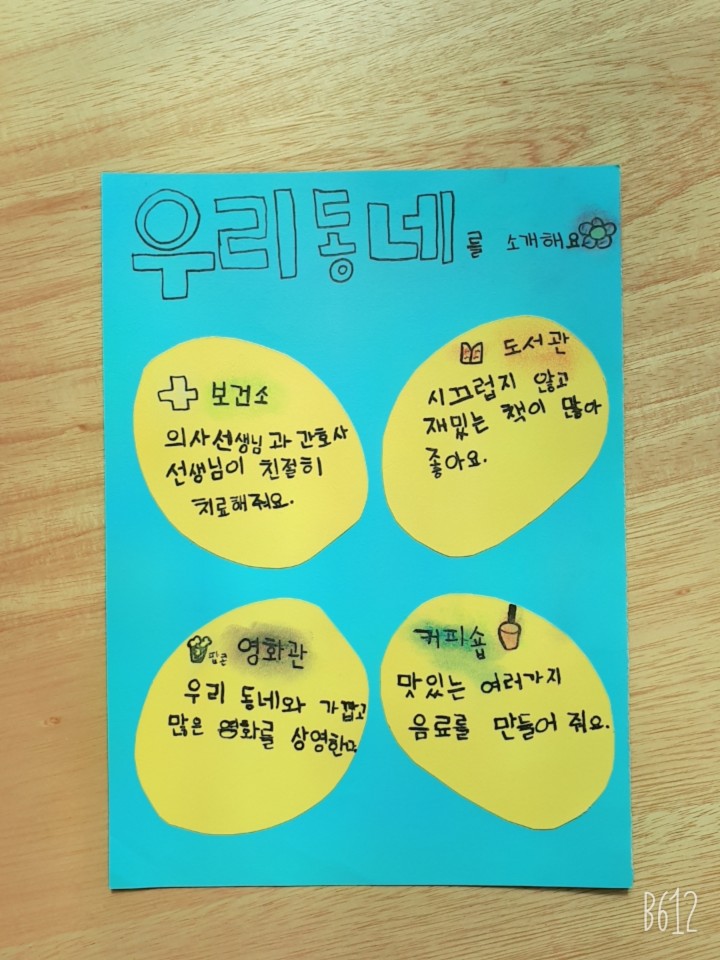 우리동네를 소개해요
보건소
의사선생님과 간호사
선생님이 친절히
치료해줘요.
도서관
시끄럽지 않고
재밌는 책이 많아
좋아요.
팝콘 영화관
우리 동네와 가깝고
많은 영화를 상영한다.
커피숍
맛있는 여러가지
음료를 만들어 줘요.
B612